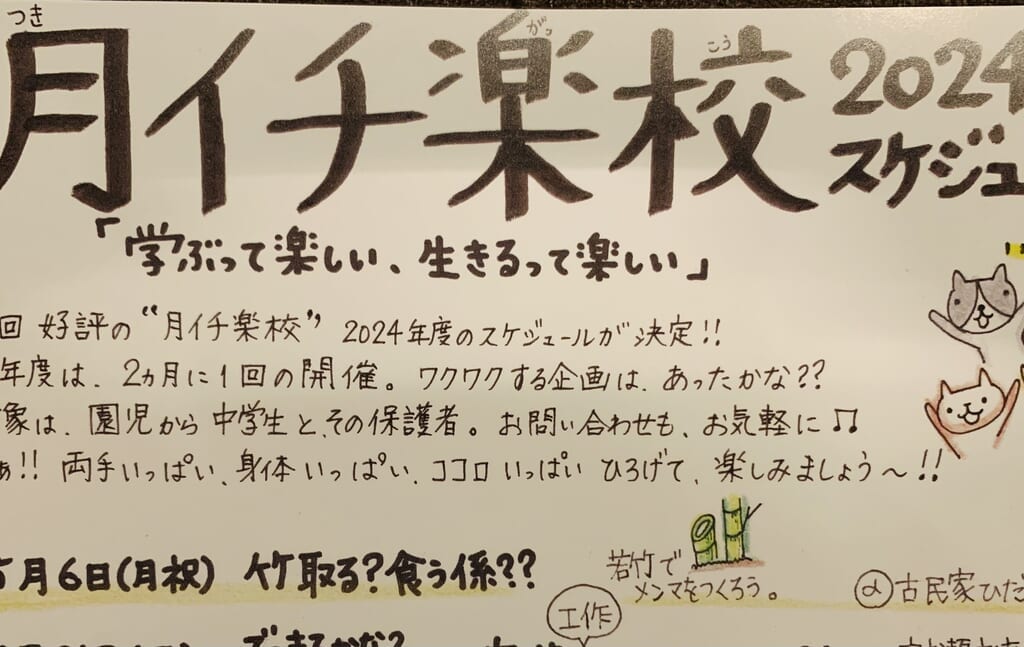 月イチ楽校 2024
つき がっ こう
スケジュ
「学ぶって楽しい、生きるって楽しい」
回 好評の“月イチ楽校” 2024年度のスケジュールが決定!!
年度は、2ヵ月に1回の開催。ワクワクする企画は、あったかな??
象は、園児から中学生と、その保護者。お問い合わせも、お気軽に♫
ぁ!! 両手いっぱい、身体いっぱい、ココロいっぱい ひろげて、楽しみましょう〜!!
5月6日(月祝) 竹取る?食う係??
若竹で
メンマをつくろう。
古民家ひだ
工作